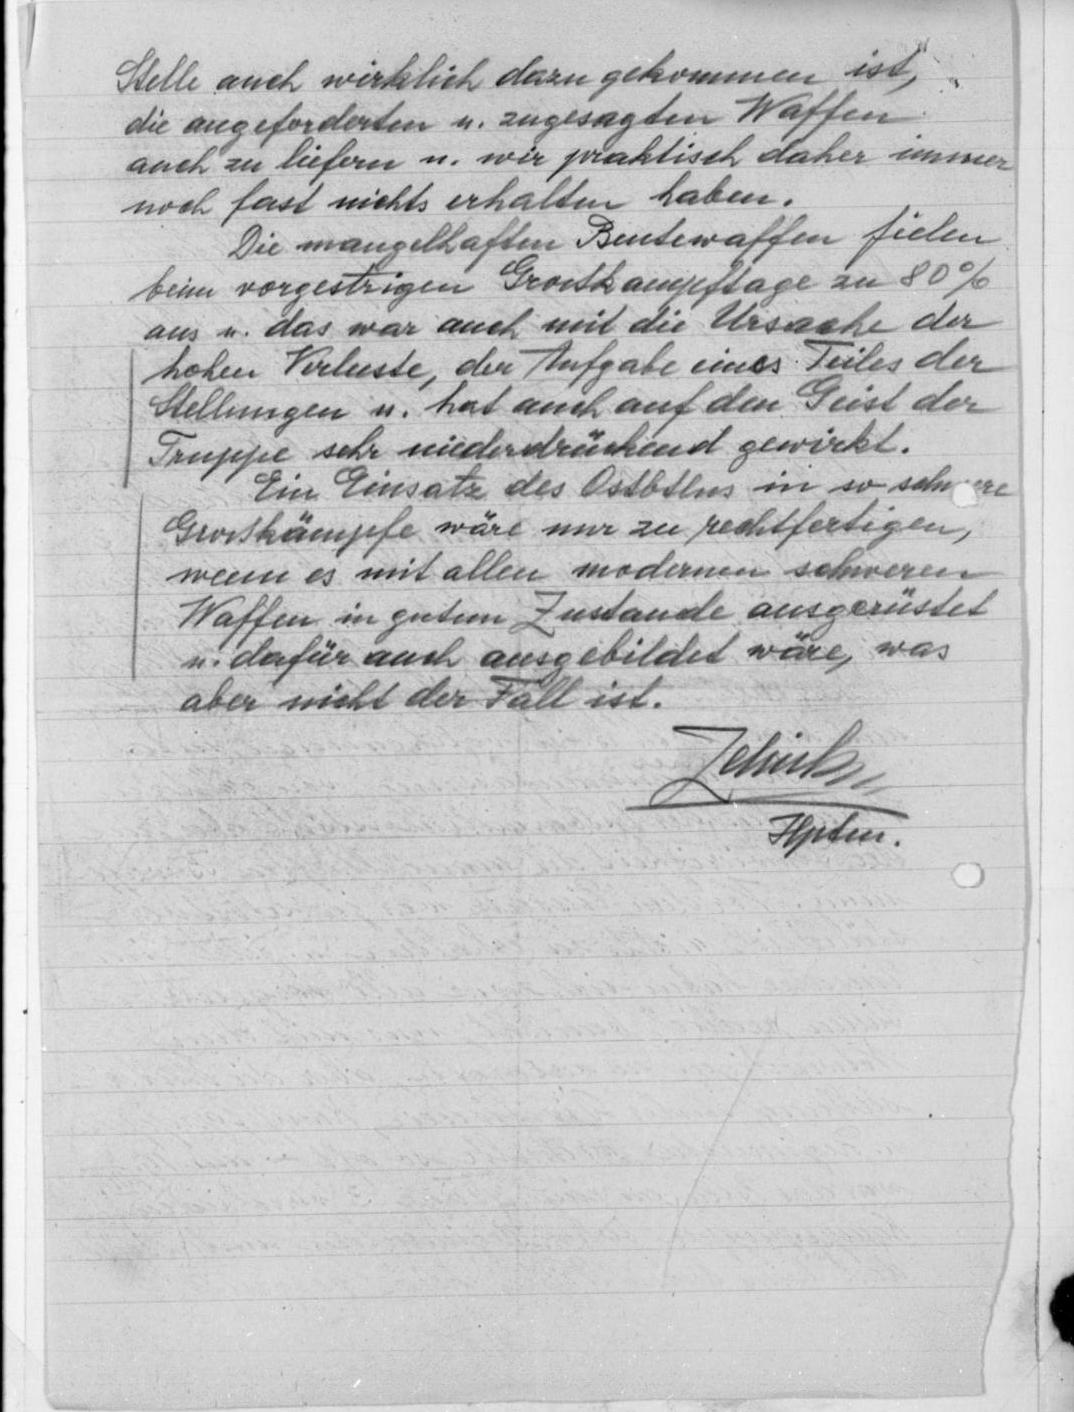 Stelle auch wirklich dazu gekommen ist,
die angeforderten u. zugesagten Waffen
auch zu liefern u. wir praktisch daher immer
noch fast nichts erhalten haben.
Die mangelhaften Beutewaffen fielen
beim vorgestrigen Großkampftage zu 80%
aus u. das war auch mit die Ursache der
hohen Verluste, der Aufgabe eines Teiles der
Stellungen u. hat auch auf den Geist der
Truppe sehr niederdrückend gewirkt.
Ein Einsatz des Ostbtlns in so schwere
Großkämpfe wäre nur zu rechtfertigen,
wenn es mit allen modernen schweren
Waffen in gutem Zustande ausgerüstet
u. dafür auch ausgebildet wäre, was
aber nicht der Fall ist.
Hptm.